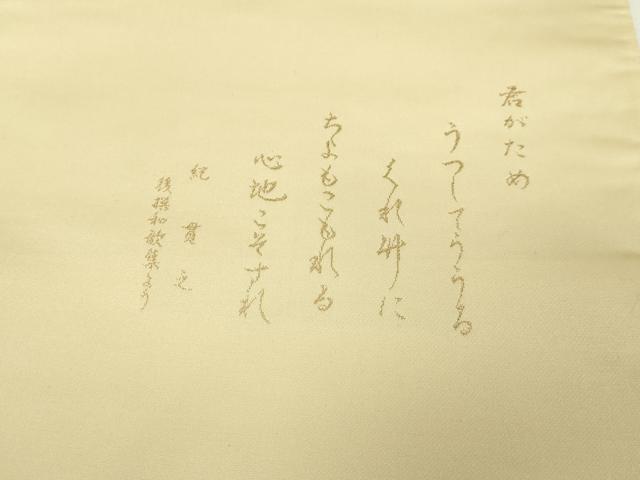 君がため
うつしてううる
くれ竹に
ちよもこもれる
心地こそすれ
紀貫之
後撰和歌集より